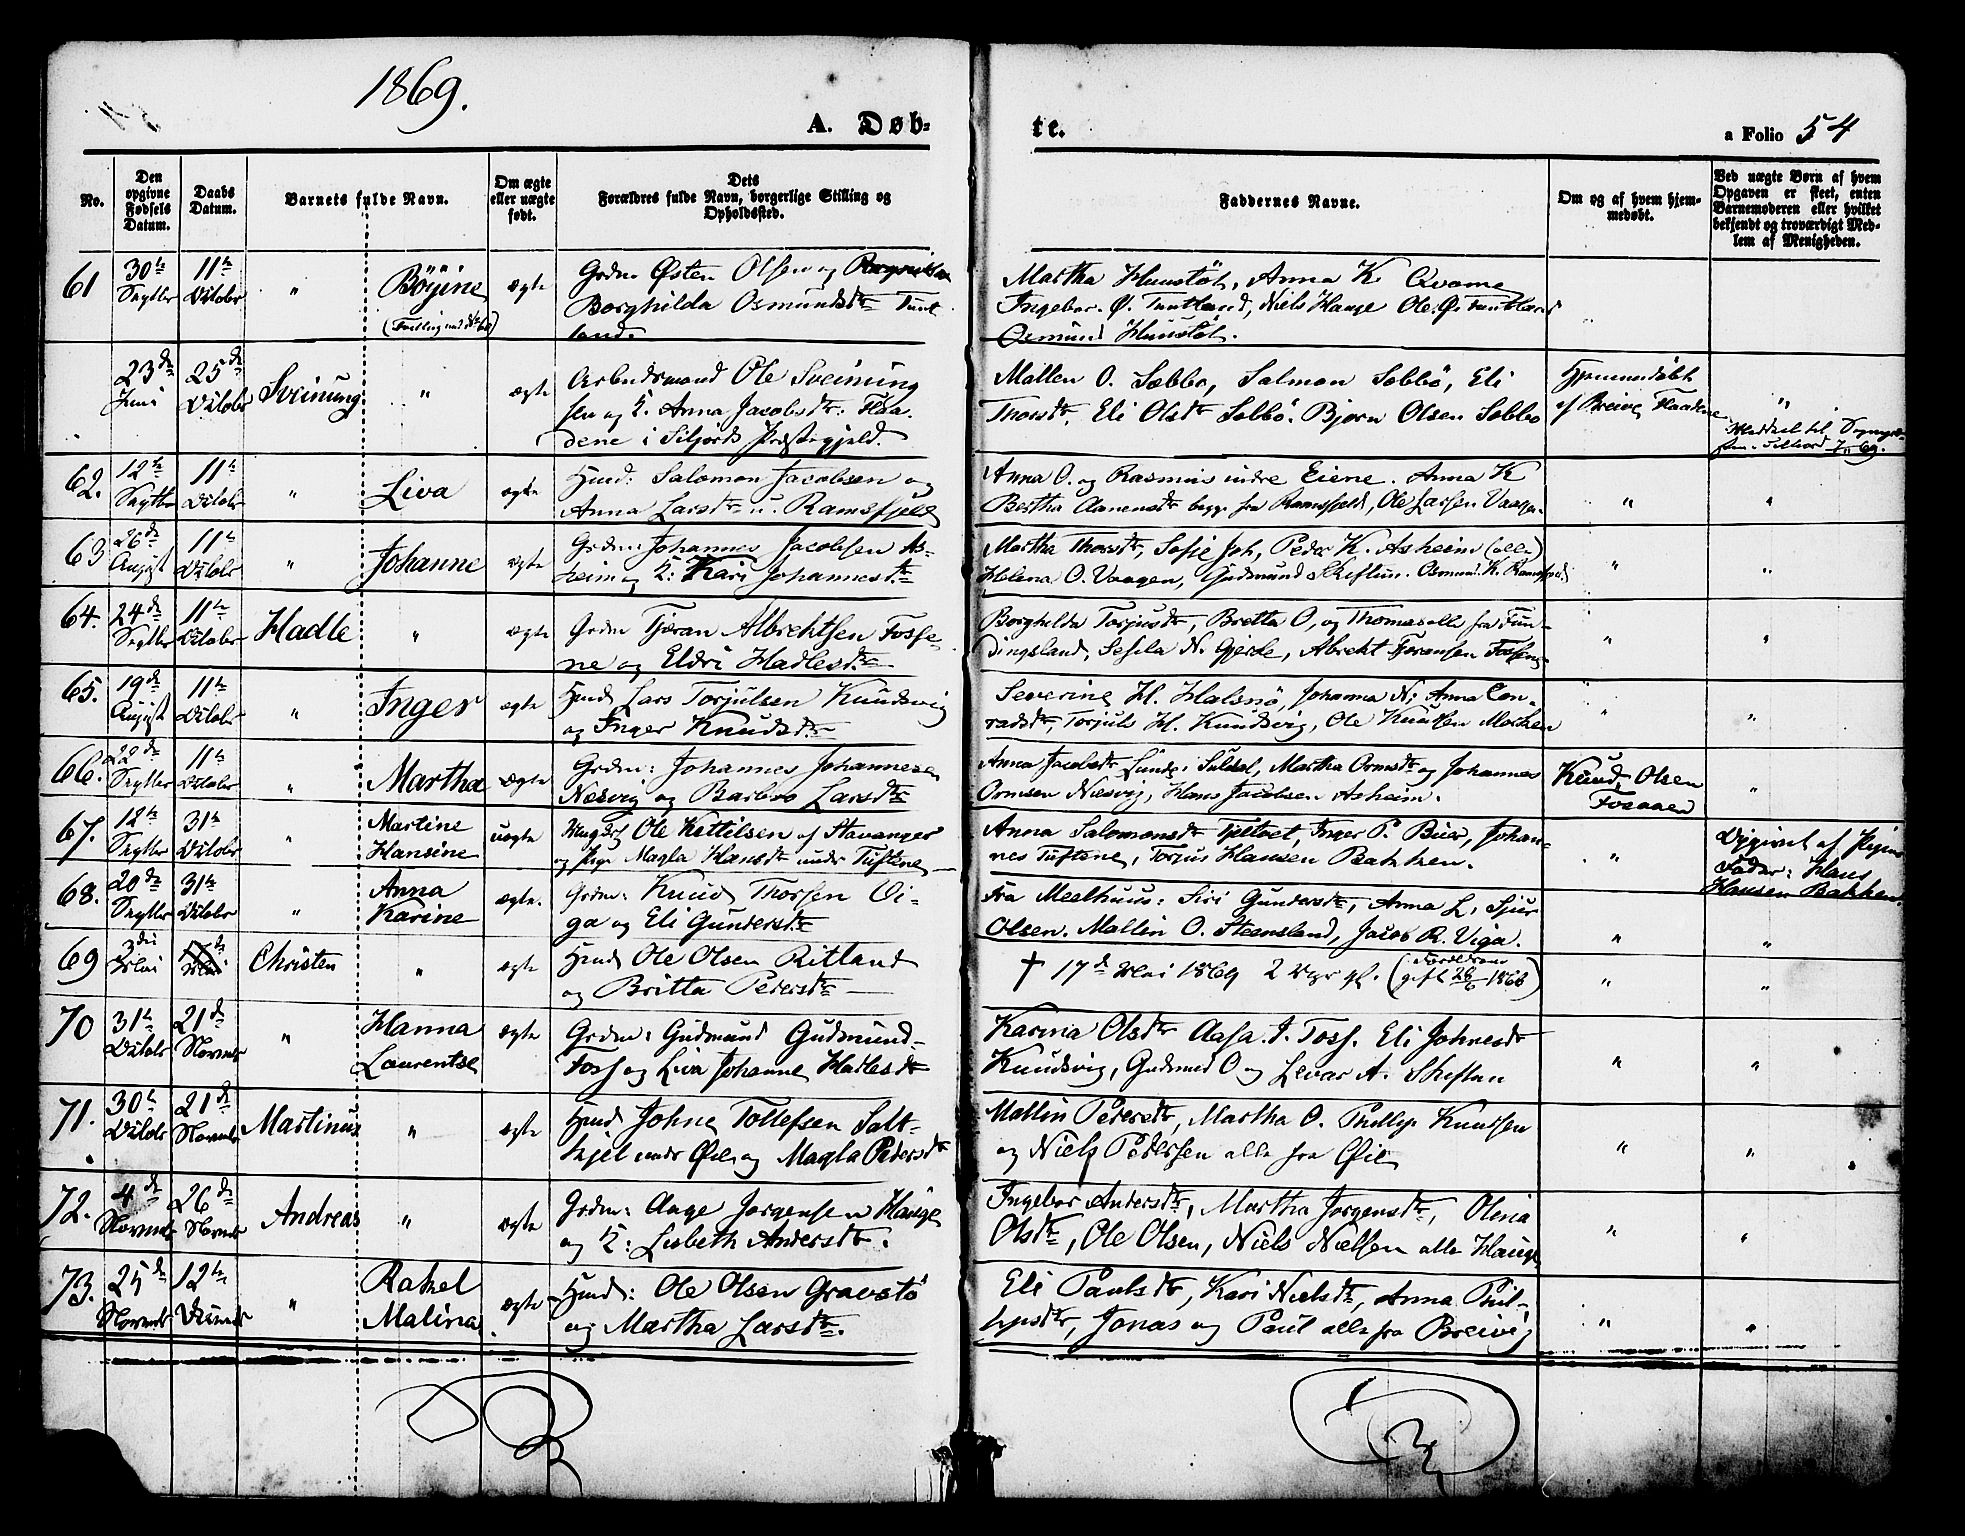 1869.
A. Døb-
te.
a Folio 54
No.
Den opgivne Fødsels Datum.
Daabs Datum.
Barnets fulde Navn.
Om ægte eller uægte født.
Dets Forældres fulde Navn, borgerlige Stilling og Opholdssted.
Faddernes Navne.
Om og af hvem hjemmedøbt.
Ved uægte Børn af hvem Opgaven er skeet, enten Barnemoderen eller hvilket bekjendt og troværdigt Medlem af Menigheden.
61 30te Septbr 11te Octobr " Böyine ægte Grdm Østen Olsen og
Borghilda Osmundsdtr Tunt
land.
Martha Hunstöl, Anna K. Qvame
Ingebor. Ø. Tuntland, Niels Hauge Ole Ø. Tuntland
Osmund Hunstöl.
23de Juni 25de Octobr Sveinung " ægte Arbeidsmand Ole Sveining
sen og K. Anna Jacobsdtr: Flaa-
dene i Siljords Præstegjeld.
Mallen O. Sæbbø, Salmon Sebbö, Eli
Thorsdtr, Eli Olsdtr Selbö. Bjørn Olsen Sebbo
Hjemmedöbt
af Breive Flaadene "
62. 12te Septbr 11te Octobr " Liva ægte Husmd: Salomon Jacobsen og
Anna Larsdtr u. Ramsfjeld
Anna O. og Rasmus indre Eiene. Anna K
Bertha Aanensdtr begge fra Ramsfjeld, Ole Larsen Vaage. " "
63 26de August 11te Octobr " Johanne ægte Grdm: Johannes Jacobsen As-
heim og K: Kari Johannesdtr
Martha Thorsdtr, Sofie Joh, Peder K. Asheim (alle)
Helena O. Vaagen, Gudmund Skiftun. Osmund K. Ramsfjeld " "
64. 24de Septbr 11te Octobr Hadle " ægte Grdm Tjøran Albrechtsen Fosse-
ne og Eldri Hadlesdtr
Borghilda Torjusdtr, Britta O, og Thomas alle fra Fun-
dingsland, Sesila N. Gjerde, Albrecht Tjøransen Fossene " "
65. 19de August 11te Octobr " Inger ægte Husmd Lars Torjulsen Knudsvig
og Inger Knudsdtr
Severine H. Halsnö, Johanna N; Anna Con-
radsdtr, Torjuls H. Knudsvig, Ole Knudsen Morken " "
66. 22de Septbr 11te Octobr " Martha ægte Grdm: Johannes Johannesen
Næsvig og Barbro Larsdtr
Anna Jacobsdtr Lunde i Suldal, Martha Ormsdtr og Johannes
Ormsen Næsvig, Hans Jacobsen Asheim.
Knud Olsen
Fosaaen "
67. 12te Septbr 31te Octobr " Martine
Hansine uægte Ungkrl Ole Kettilsen af Stavanger
og Pige Magla Hansdtr under Tuftene
Anna Salomonsdtr Tjeltvet, Inger P. Buer, Johan-
nes Tuftene, Torjus Hansen Bakken. "
Opgivet af Pigens
Fader: Hans
Hansen Bakken.
68. 20de Septbr 31te Octobr " Anna
Karine ægte. Grdm: Knud Thorsen Vi-
ga og Eli Gundersdtr
Fra Meelhuus: Siri Gundersdtr, Anna L, Sjur
Olsen. Mallin O. Steensland, Jacob R. Viga. " "
69 3die Mai 17de Mai Christen " ægte Husmd Ole Olsen Ritland
og Britta Pedersdtr
† 17de Mai 1869 2 Uger gl. (Forældrene
gift 28/6 1868) " "
70 31te Octobr 21de Novmbr " Hanna
Laurentse ægte Grdm: Gudmund Gudmund-
Foss og Liva Johanne Hadlesdtr
Karina Olsdtr Aasa. J. Foss. Eli Johnesdtr
Knudsvig, Gudmund O og Levar A. Skiftun " "
71. 30te Octobr 21de Novmbr Martinus " ægte Husmd Johne Tollefsen Salt-
kjel under Øie og Magla Pedersdtr
Mallin Pedersdtr, Martha O. Phillip Knudsen
og Niels Pedersen alle fra Øie " "
72. 4de Novmbr 26de Novmbr Andreas " ægte Grdm: Aage Jørgensen Hauge
og K: Lisbeth Andersdtr.
Ingebor Andersdtr, Martha Jørgensdtr, Olina
Olsdtr, Ole Olsen, Niels Nielsen alle Hauge " "
73. 25de Novmbr 12te Decmbr " Rakel
Malina ægte Husmd: Ole Olsen Gravstö
og Martha Larsdtr.
Eli Paulsdtr, Kari Nielsdtr, Anna Phil-
lipsdtr, Jonas og Paul alle fra Breivig " "